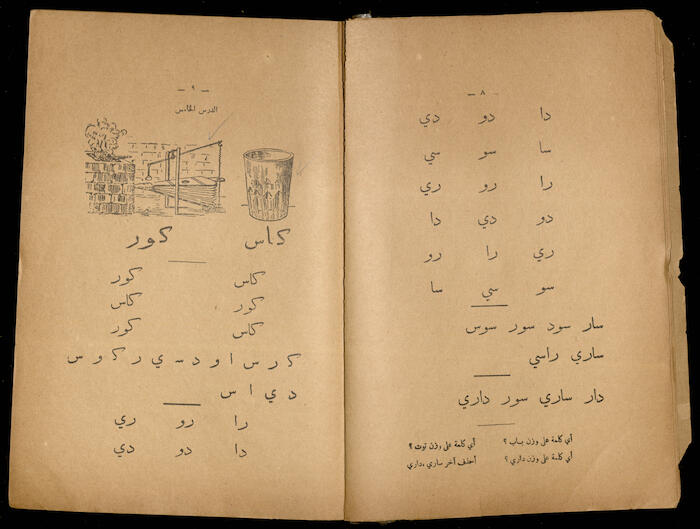 — ٨ —
دا دو دي
سا سو سي
را رو ري
دو دي دا
ري را رو
سو سي سا
سار سود سور سوس
ساري راسي
دار ساري سور داري
أي كلمة على وزن باب ؟ أي كلمة على وزن توت ؟
أي كلمة على وزن داري ؟ احذف آخر ساري ،داري
— ٩ —
الدرس الخامس
كاس كور
كاس كور
كور كاس
كاس كور
ك ر س ا و د س ي ر ك و س
د ي ا س
را رو ري
دا دو دي